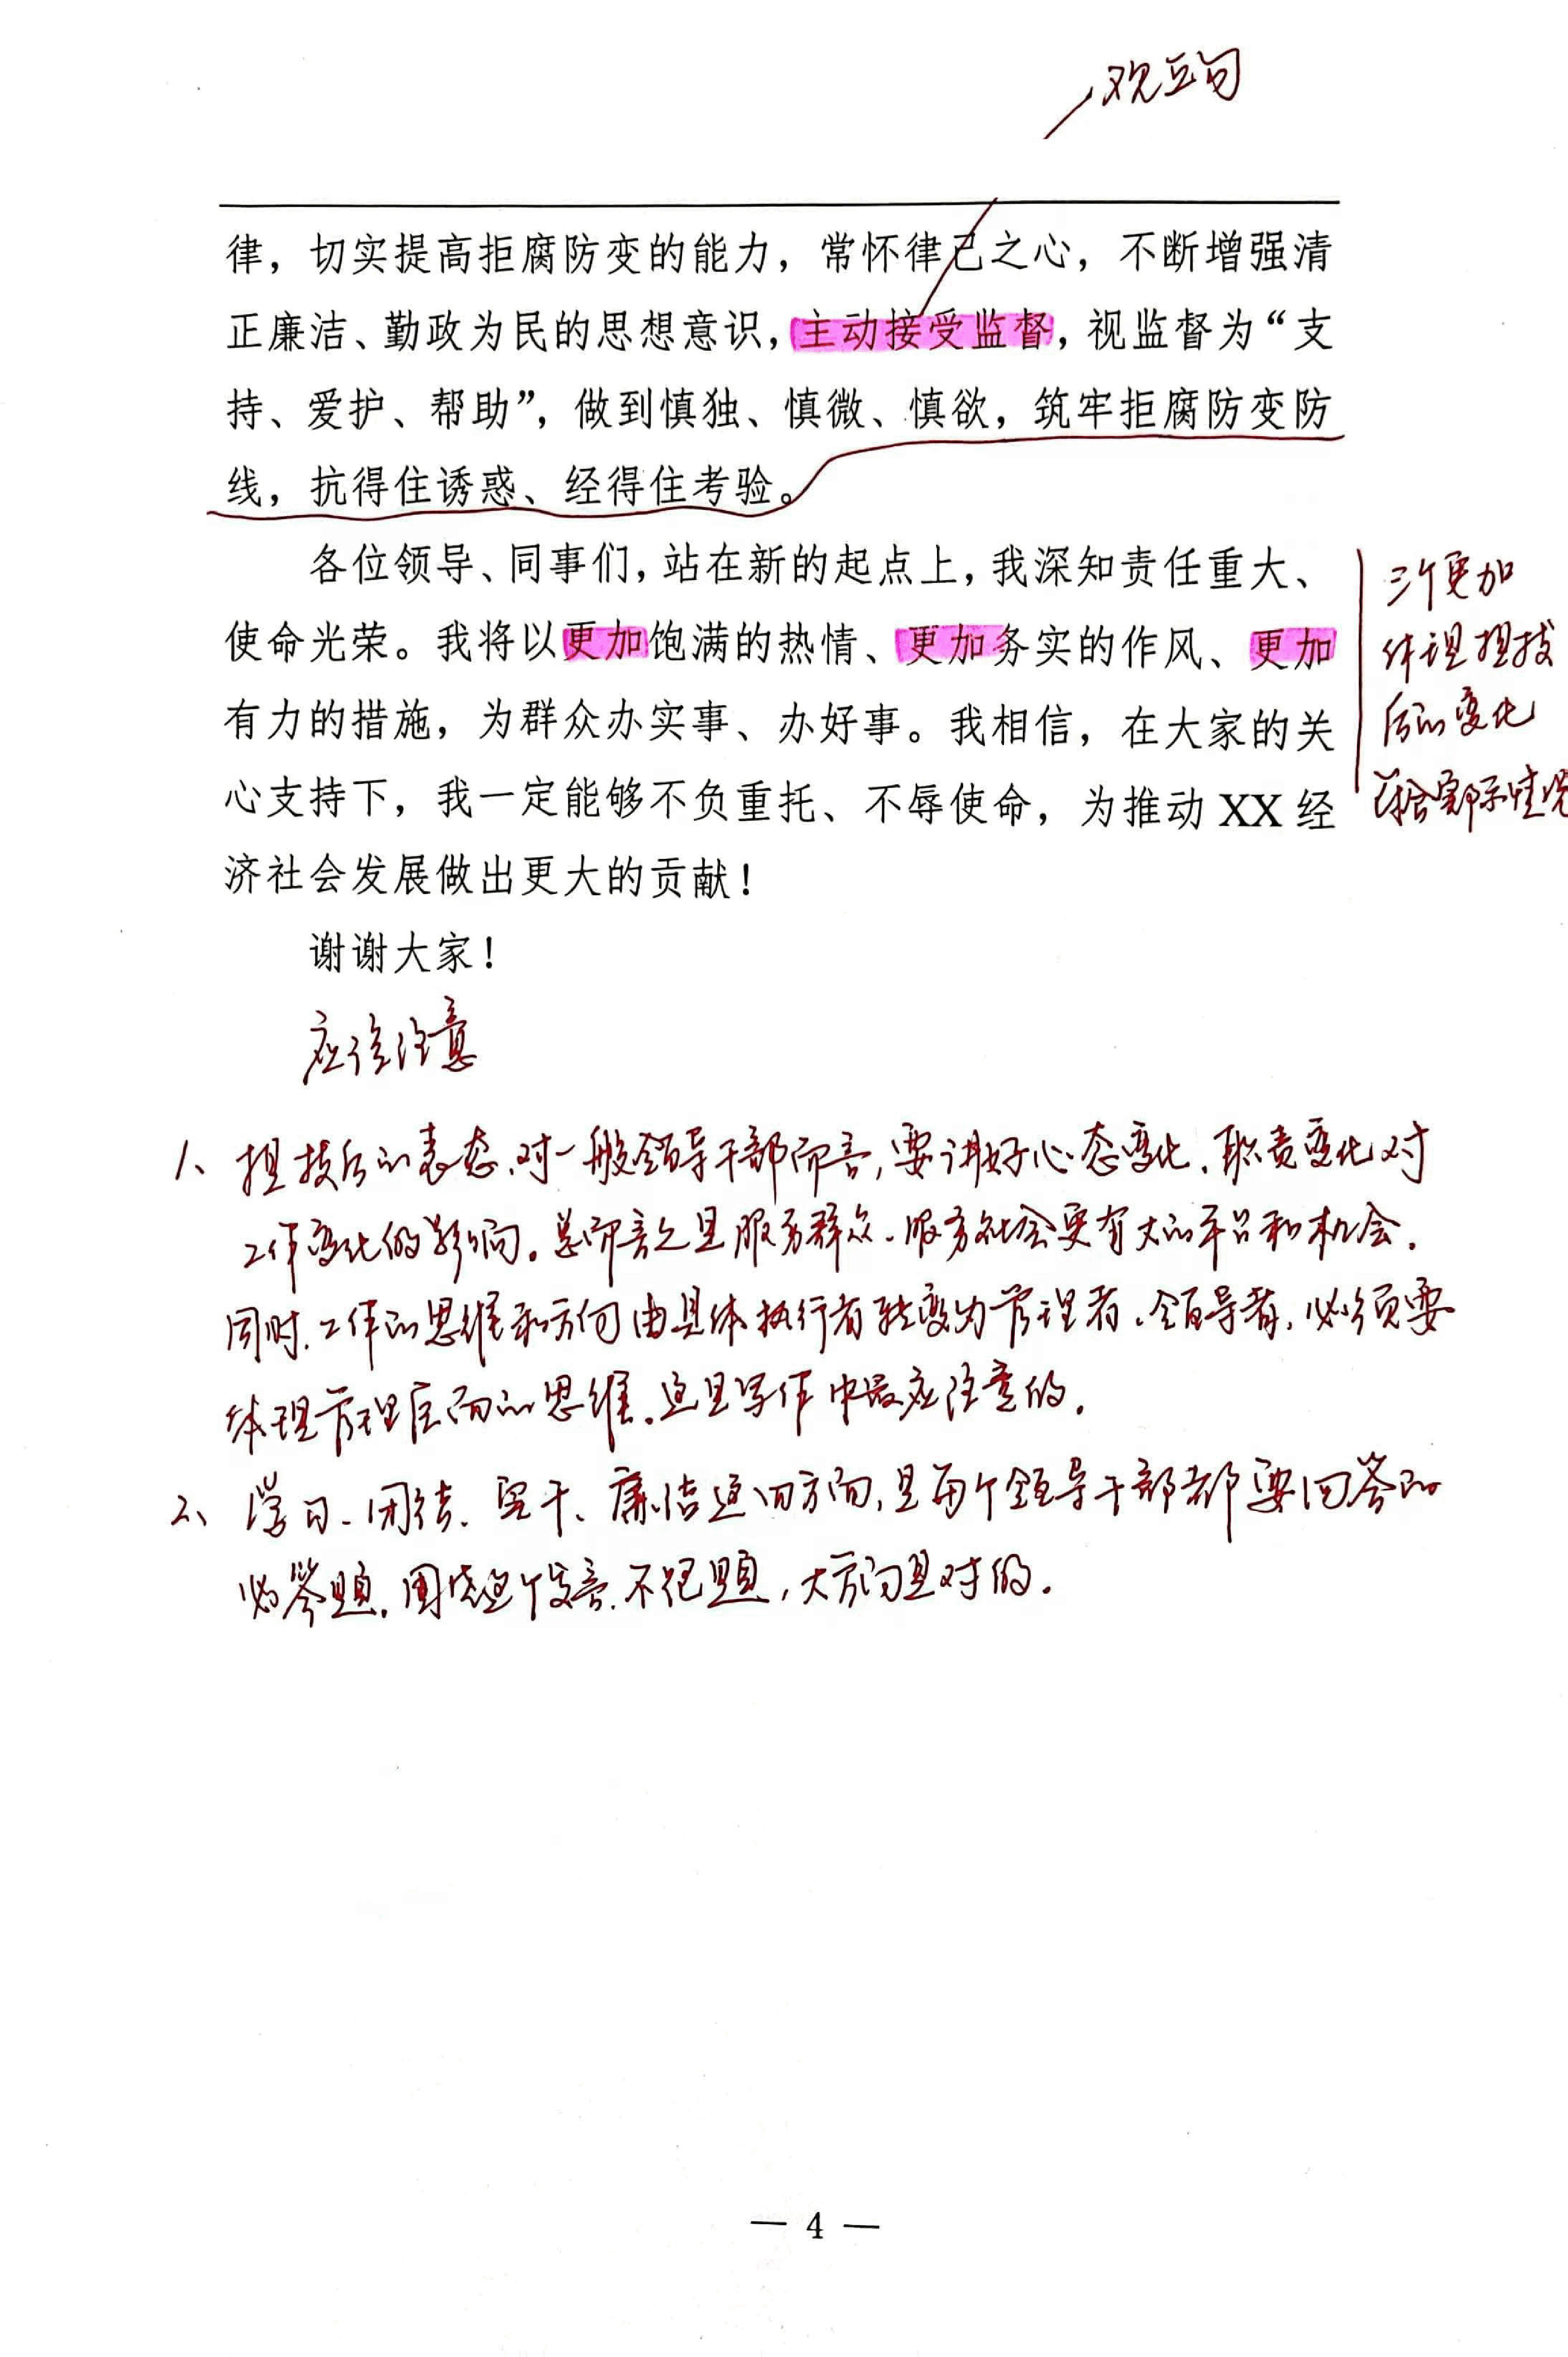 观点句
律，切实提高拒腐防变的能力，常怀律己之心，不断增强清
正廉洁、勤政为民的思想意识，主动接受监督，视监督为“支
持、爱护、帮助”，做到慎独、慎微、慎欲，筑牢拒腐防变防
线，抗得住诱惑、经得住考验。
各位领导、同事们，站在新的起点上，我深知责任重大、
使命光荣。我将以更加饱满的热情、更加务实的作风、更加
有力的措施，为群众办实事、办好事。我相信，在大家的关
心支持下，我一定能够不负重托、不辱使命，为推动 XX 经
济社会发展做出更大的贡献！
三个更加
体现提拔
后的变化
符合实际情况
谢谢大家！
应该注意
1、提拔后的表态，对一般领导干部而言，要讲好心态变化、职责变化对
工作变化的影响。总而言之是服务群众、服务社会更有大的平台和机会。
同时，工作的思维和方向由具体执行者转变为管理者、领导者，必须要
体现管理层面的思维，这是写作中最应注意的。
2、学习、团结、实干、廉洁这四方面，是每个领导干部都要回答的
必答题，围绕这个发言，不犯题，大方向是对的。
— 4 —